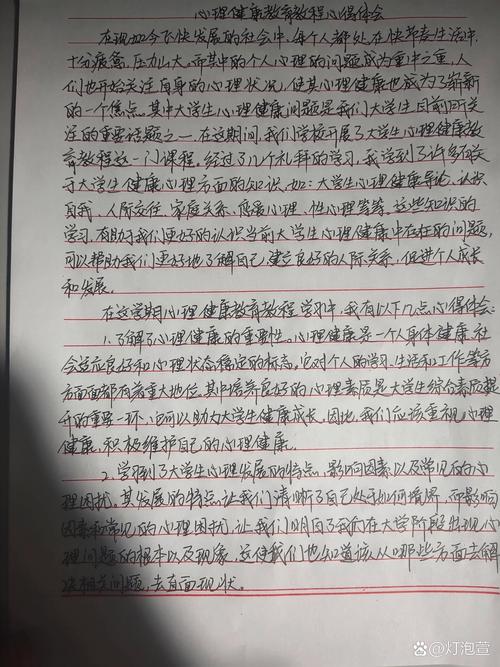 心理健康教育教程心得体会
在现如今飞快发展的社会中,每个人都处在快节奏生活中,
十分疲惫,压力山大,而其中的个人心理的问题成为重中之重,人
们也开始关注自身的心理状况,使其心理健康也成为了崭新
的一个焦点。其中大学生心理健康问题是我们大学生目前所关
注的重要话题之一,在这期间,我们学校开展了大学生心理健康教
育教程这一门课程,经过了几个礼拜的学习,我学到了许多有关
于大学生健康心理方面的知识,如:大学生心理健康导论、认识
自我、人际交往、家庭关系、恋爱心理、性心理等等。这些知识的
学习,有助于我们更好的认识当前大学生心理健康中存在的问题,
可以帮助我们更好地了解自己,建立良好的人际关系,促进个人成长
和发展。
在这学期心理健康教育教程学习中,我有以下几点心得体会:
1.了解了心理健康的重要性。心理健康是一个人身体健康、社
会适应良好和心理状态稳定的标志。它对个人的学习、生活和工作等方
方面面都有着重大地位。其中培养良好的心理素质是大学生综合素质提
升的重要一环,它可以助力大学生健康成长。因此,我们应该重视心理
健康,积极维护自己的心理健康。
2.学习到了大学生心理发展的特点、影响因素以及常见的心
理困扰。其发展的特点,让我们清晰了自己处于如何境界,而影响
因素和常见的心理困扰,让我们明白了我们在大学阶段出现心
理问题的根本以及现象,这使我们也知道该从哪些方面去解
决相关问题,去直面现状。
百家号/灯泡萱